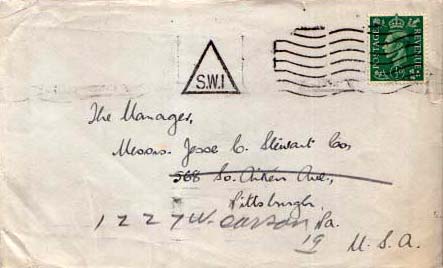 POSTAGE REVENUE
S.W.1
The Manager,
Messrs. Jesse C. Stewart Co,
568 So. Aiken Ave.,
Pittsburgh,
1227 W. Carson Pa.
19 U.S.A.